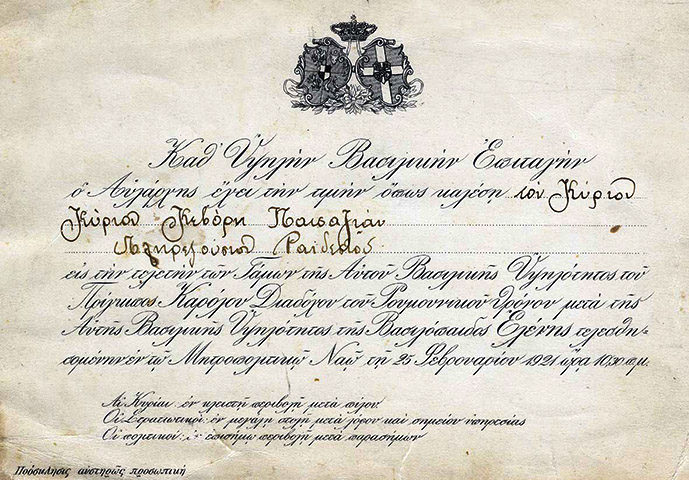 Καθ' Ὑψηλὴν Βασιλικὴν Ἐπιταγὴν
ὁ Αὐλάρχης ἔχει τὴν τιμὴν ὅπως καλέσῃ τὸν Κύριον
Κύριον Κεβὸρκ Παπαζιὰν
Ραιδεστοῦ
εἰς τὴν τελετὴν τῶν Γάμων τῆς Αὐτοῦ Βασιλικῆς Ὑψηλότητος τοῦ
Πρίγκιπος Καρόλου Διαδόχου τοῦ Ρουμουνικοῦ Θρόνου μετὰ τῆς
Αὐτῆς Βασιλικῆς Ὑψηλότητος τῆς Βασιλόπαιδος Ἑλένης τελεσθη-
σομένην ἐν τῷ Μητροπολιτικῷ Ναῷ τῇ 25 Φεβρουαρίου 1921 ὥρᾳ π.μ.
Αἱ Κυρίαι: ἐν κλειστῇ περιβολῇ μετὰ πίλου
Οἱ Στρατιωτικοί: ἐν μεγάλῃ στολῇ μετὰ καὶ σημείου ὑπηρεσίας
Οἱ πολιτικοί: ἐν ἐπισήμῳ περιβολῇ μετὰ παρασήμων
Πρόσκλησις αὐστηρῶς προσωπική